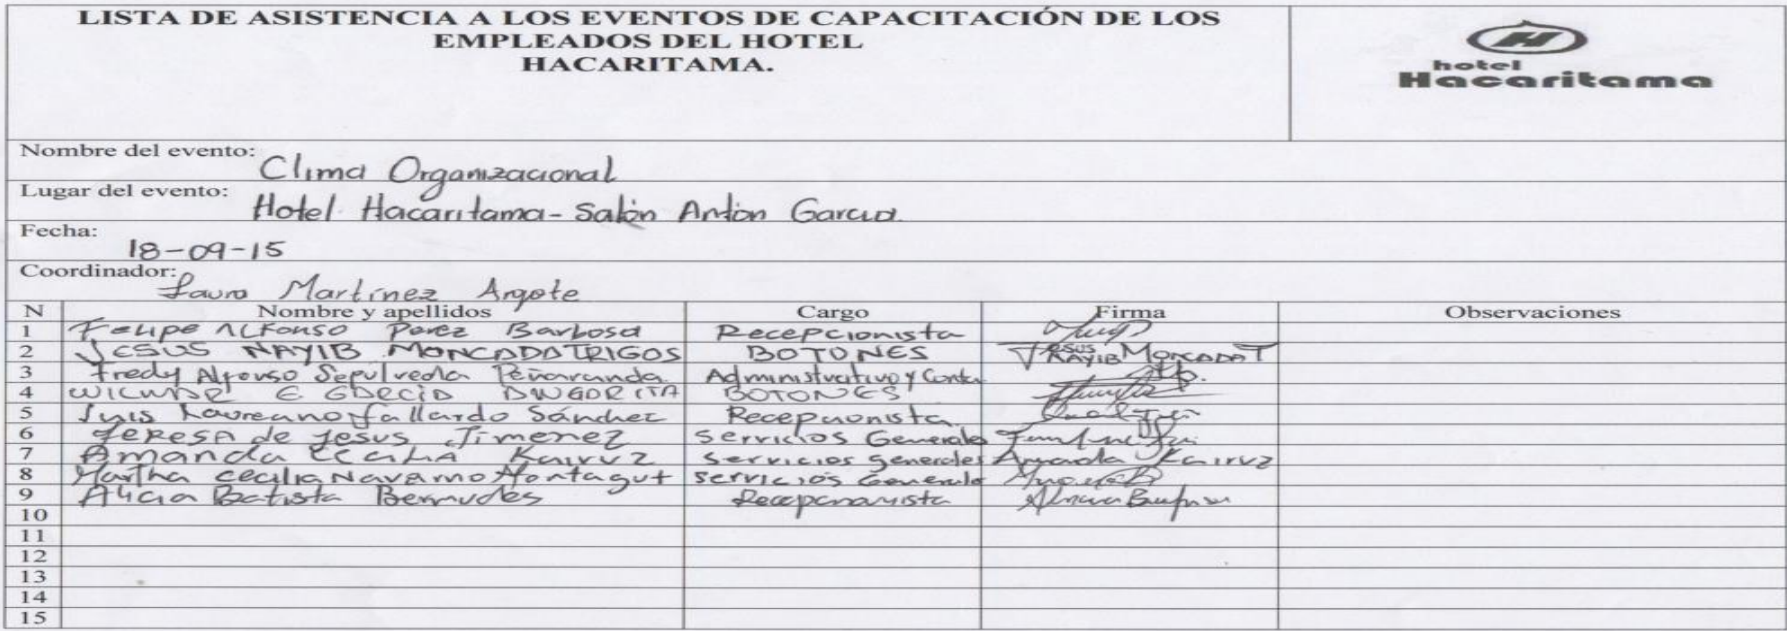 LISTA DE ASISTENCIA A LOS EVENTOS DE CAPACITACIÓN DE LOS
EMPLEADOS DEL HOTEL
HACARITAMA.
hotel
Hacaritama
Nombre del evento: Clima Organizacional
Lugar del evento: Hotel Hacaritama - Salón Antón García
Fecha: 18-09-15
Coordinador: Laura Martínez Argote
N Nombre y apellidos Cargo Firma Observaciones
1 Felipe Alfonso Perez Barbosa Recepcionista
2 JESUS NAYIB MONCADA TRIGOS BOTONES JESUS NAYIB MONCADA T
3 Fredy Alfonso Sepulveda Peñaranda Administrativo y Conta
4 E GARCIA BOTONES
5 Luis Laureano Gallardo Sánchez Recepcionista
6 Teresa de Jesus Jimenez Servicios Generales
7 Amanda Kairuz Servicios generales Amanda Kairuz
8 Martha Cecilia Navarro Montagut Servicios Generale
9 Alicia Batista Bermudes Recepcionista
10
11
12
13
14
15